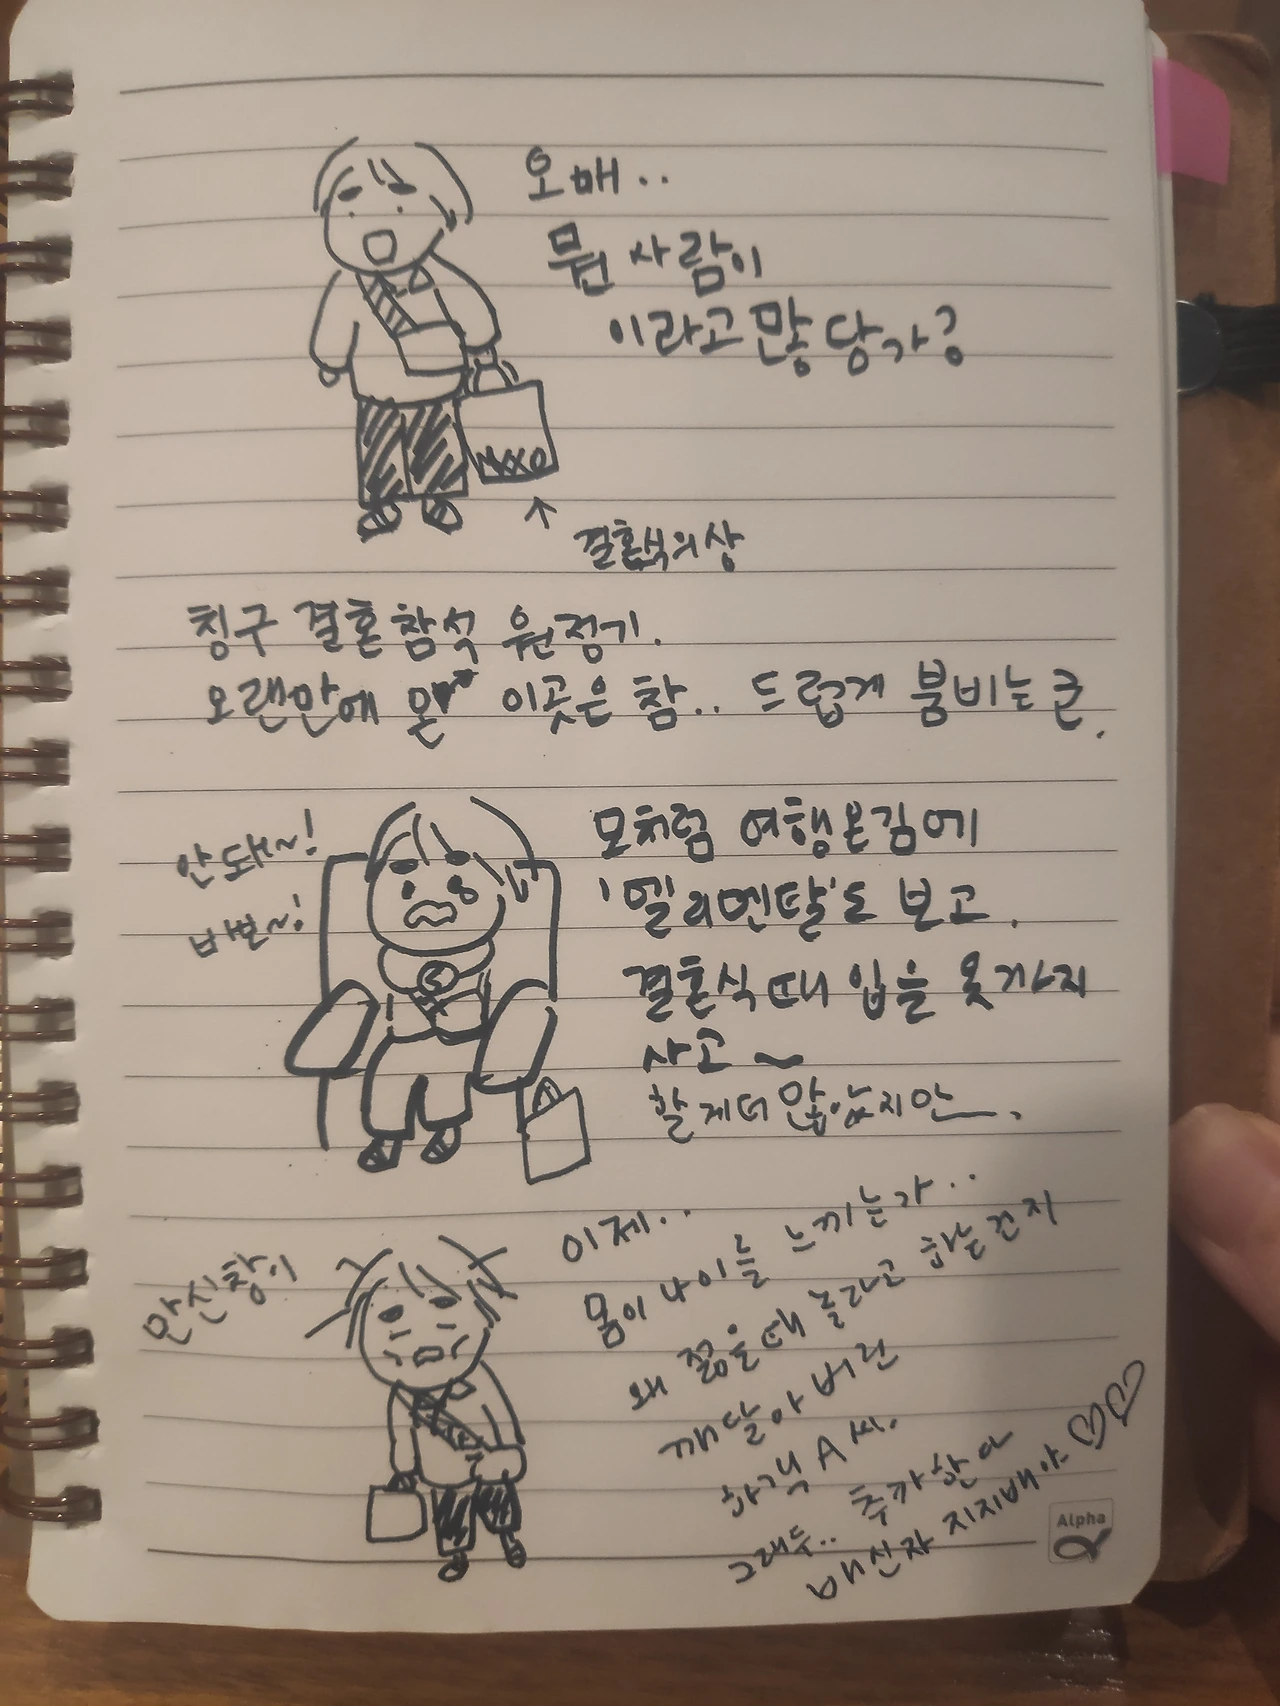 오매..
뭔 사람이
이라고 많당가?
NXXO
결혼식의상
칭구 결혼 참석 원정기.
오랜만에 온 이곳은 참.. 드럽게 붐비는 곳.
안돼~!
바보~!
모처럼 여행온김에
'엘리멘탈'도 보고.
결혼식 때 입을 옷가지
사고~
할게더많았지만—.
만신창이
이제..
몸이 나이를 느끼는가..
왜 젊을때 놀라고 하는건지
깨달아버린
하객 A씨.
그래두.. 축카한아
배신자 지지배야 ♡♡
Alpha